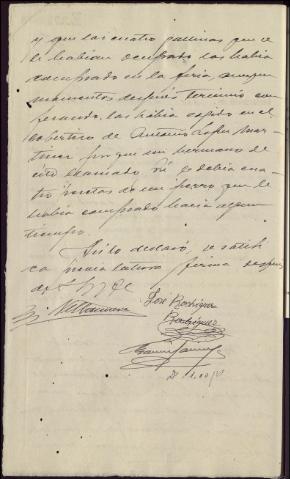 y que las cuatro gallinas que se
le habian ocupado las habia
comprado en la feria, aunque
momentos después terminó con-
fesando, las habia cogido en el
cobertizo de Antonio Lopez Mar-
tinez porque un hermano de
éste llamado le debia cua-
tro pesetas de un perro que le
habia comprado hacia algun
tiempo.
Asi lo declaró, se ratifi-
ca previa lectura firma
de
José Rodriguez
Rodriguez